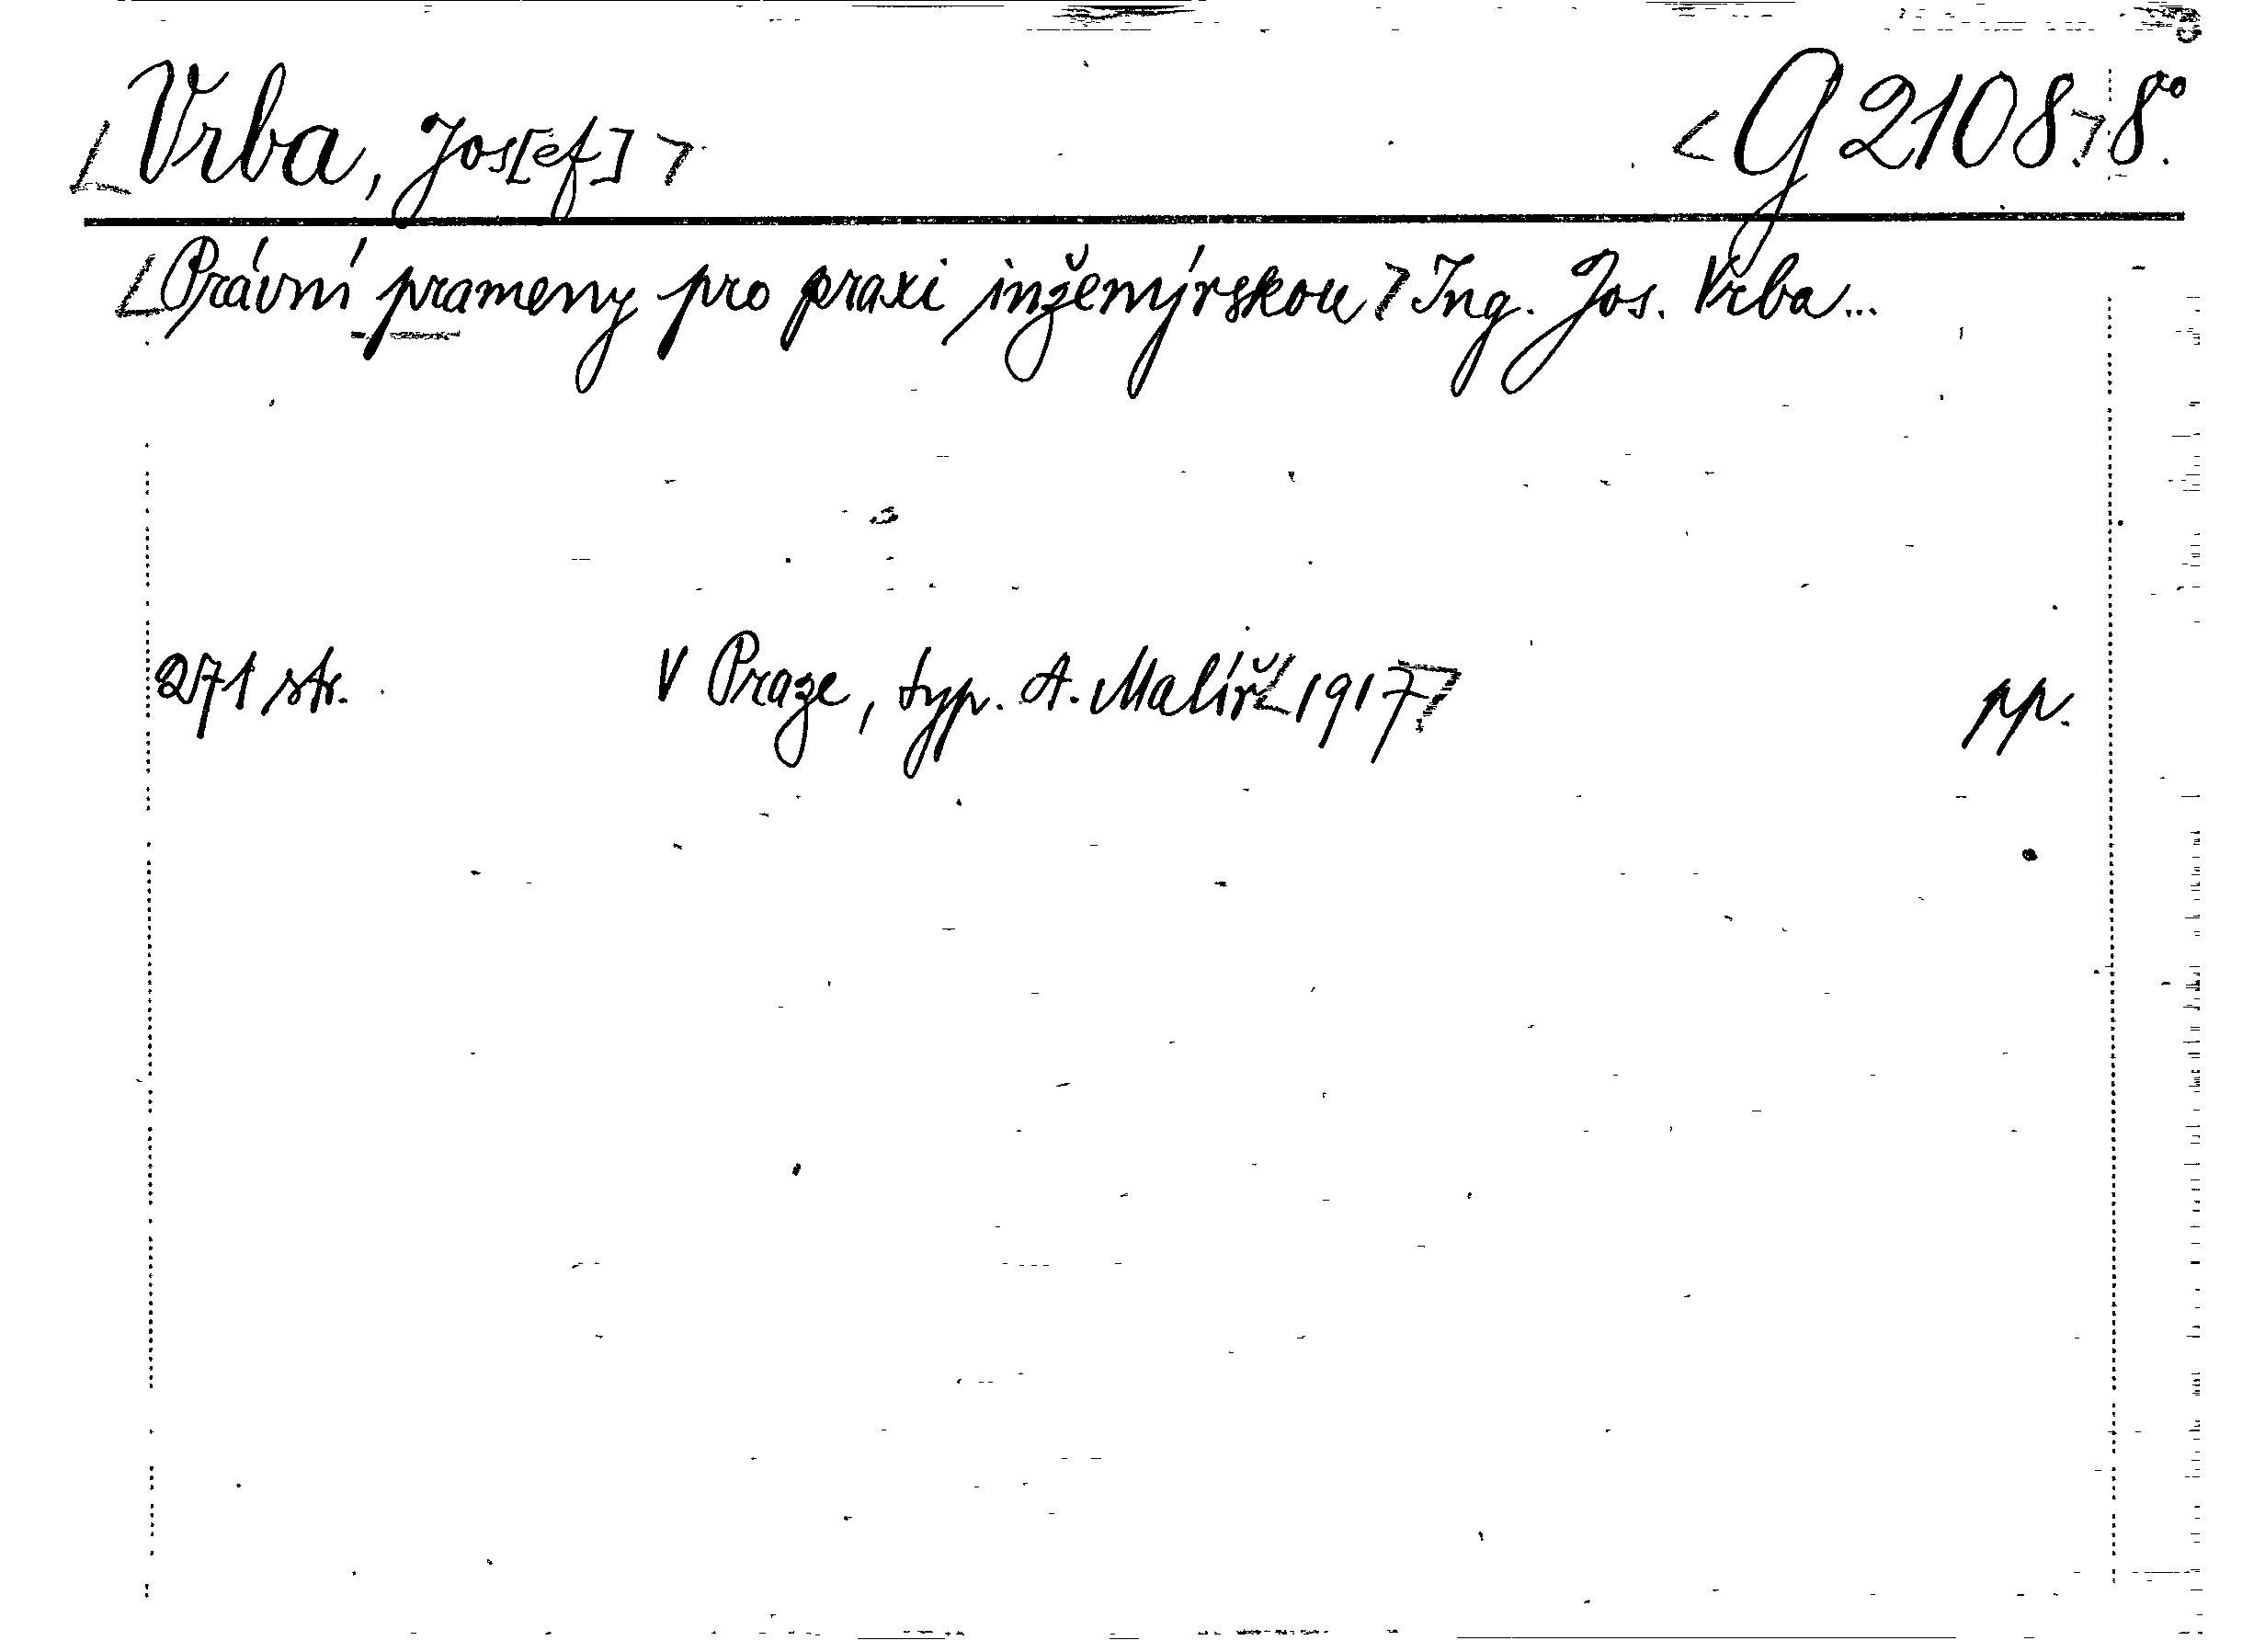 <Vrba, Jos[ef]> <G 2108.> 8°.
<Právní prameny pro praxi inženýrskou> Ing. Jos. Vrba...
271 str. V Praze, typ. A. Malíř <1917> pp.